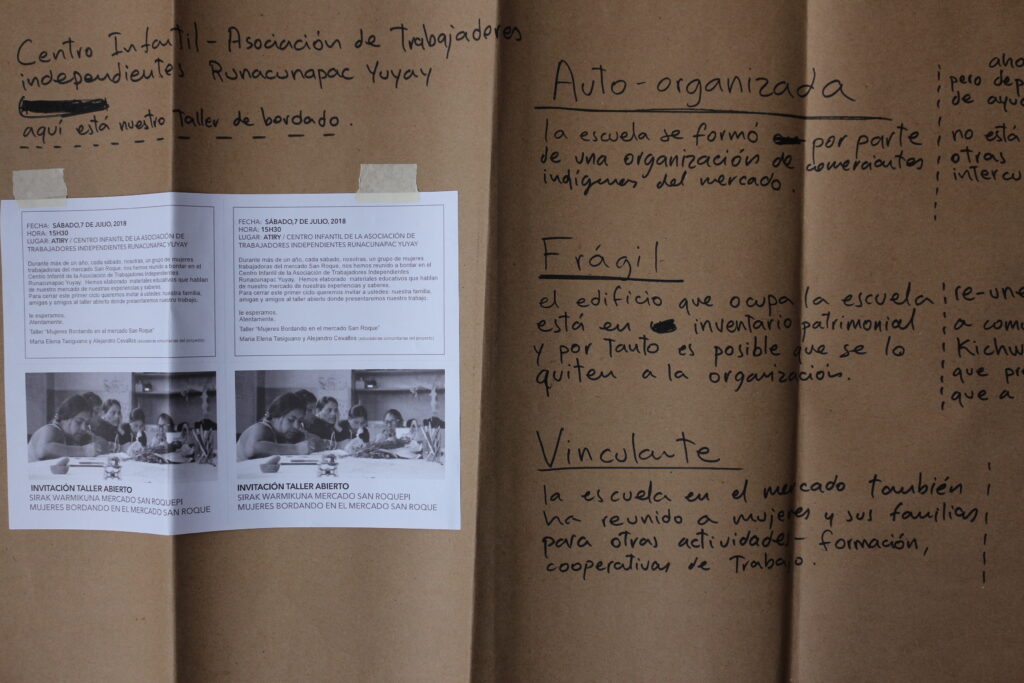 Centro Infantil - Asociación de Trabajadores
independientes Runacunapac Yuyay
aquí está nuestro Taller de bordado.
FECHA: SÁBADO,7 DE JULIO, 2018
HORA: 15H30
LUGAR: ATIRY / CENTRO INFANTIL DE LA ASOCIACIÓN DE
TRABAJADORES INDEPENDIENTES RUNACUNAPAC YUYAY
Durante más de un año, cada sábado, nosotras, un grupo de mujeres
trabajadoras del mercado San Roque, nos hemos reunido a bordar en el
Centro Infantil de la Asociación de Trabajadores Independientes
Runacunapac Yuyay. Hemos elaborado materiales educativos que hablan
de nuestro mercado de nuestras experiencias y saberes.
Para cerrar este primer ciclo queremos invitar a ustedes: nuestra familia,
amigas y amigos al taller abierto donde presentaremos nuestro trabajo.
le esperamos,
Atentamente,
Taller "Mujeres Bordando en el mercado San Roque"
María Elena Tasiguano y Alejandro Cevallos
FECHA: SÁBADO,7 DE JULIO, 2018
HORA: 15H30
LUGAR: ATIRY / CENTRO INFANTIL DE LA ASOCIACIÓN DE
TRABAJADORES INDEPENDIENTES RUNACUNAPAC YUYAY
Durante más de un año, cada sábado, nosotras, un grupo de mujeres
trabajadoras del mercado San Roque, nos hemos reunido a bordar en el
Centro Infantil de la Asociación de Trabajadores Independientes
Runacunapac Yuyay. Hemos elaborado materiales educativos que hablan
de nuestro mercado de nuestras experiencias y saberes.
Para cerrar este primer ciclo queremos invitar a ustedes: nuestra familia,
amigas y amigos al taller abierto donde presentaremos nuestro trabajo.
le esperamos,
Atentamente,
Taller "Mujeres Bordando en el mercado San Roque"
María Elena Tasiguano y Alejandro Cevallos
INVITACIÓN TALLER ABIERTO
SIRAK WARMIKUNA MERCADO SAN ROQUEPI
MUJERES BORDANDO EN EL MERCADO SAN ROQUE
INVITACIÓN TALLER ABIERTO
SIRAK WARMIKUNA MERCADO SAN ROQUEPI
MUJERES BORDANDO EN EL MERCADO SAN ROQUE
Auto-organizada
la escuela se formó por parte
de una organización de comerciantes
indígenas del mercado.
Frágil
el edificio que ocupa la escuela
está en inventario patrimonial
y por tanto es posible que se lo
quiten a la organización.
Vinculante
la escuela en el mercado también
ha reunido a mujeres y sus familias
para otras actividades - formación,
cooperativas de Trabajo.
aho
pero dep
de ayu
no está
otras
intercu
re-une
a com
Kichw
que pr
que a